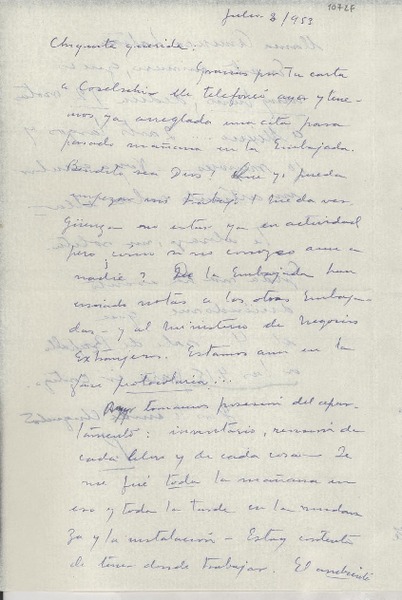 1072F
Julio 2/953
Chiquita querida:
Gracias por tu carta
a Coselschi. Me telefoneó ayer y tene-
mos ya arreglada una cita para
pasado mañana en la Embajada.
Bendito sea Dios! Que yo pueda
empezar mi trabajo! Me da ver-
güenza no estar ya en actividad
pero ¿cómo si no conozco aun a
nadie? De la Embajada han
enviado notas a las otras Embaja-
das - y al ministerio de Negocios
Extranjeros. Estamos aun en la
etapa protocolaria...
Hoy tomamos posesión del apar-
tamento: inventario, revisión de
cada libro y de cada cosa - Se
me fué toda la mañana en
eso y toda la tarde en la mudan-
za y la instalación - Estoy contenta
de tener donde trabajar. El